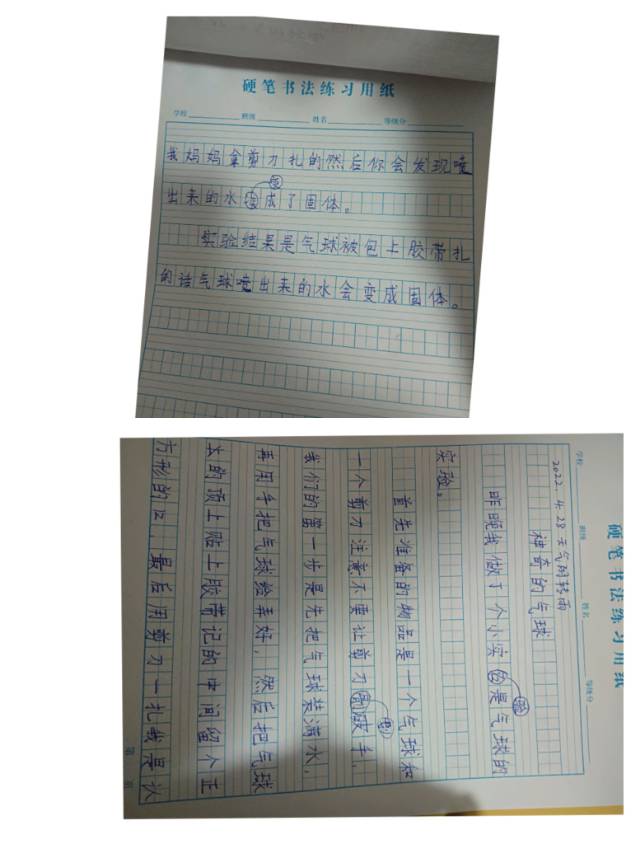 硬笔书法练习用纸
学校 班级 姓名 等级分
我妈妈拿剪刀扎的然后你会发现喷
变
出来的水成了固体。
实验结果是气球被包上胶带扎
的话气球喷出来的水会变成固体。
硬笔书法练习用纸
学校 班级 姓名 等级分
2022.4.28 天气阴转雨
神奇的气球
验
昨晚我做了个小实是气球的
实验。
首先准备的物品是一个气球和
一个剪刀注意不要让剪刀破手
我们的第一步是先把气球装满水,
再用手把气球给弄好,然后把气球
的顶上贴上胶带记的中间留个正
方形的口,最后用剪刀一扎我是认
第 页